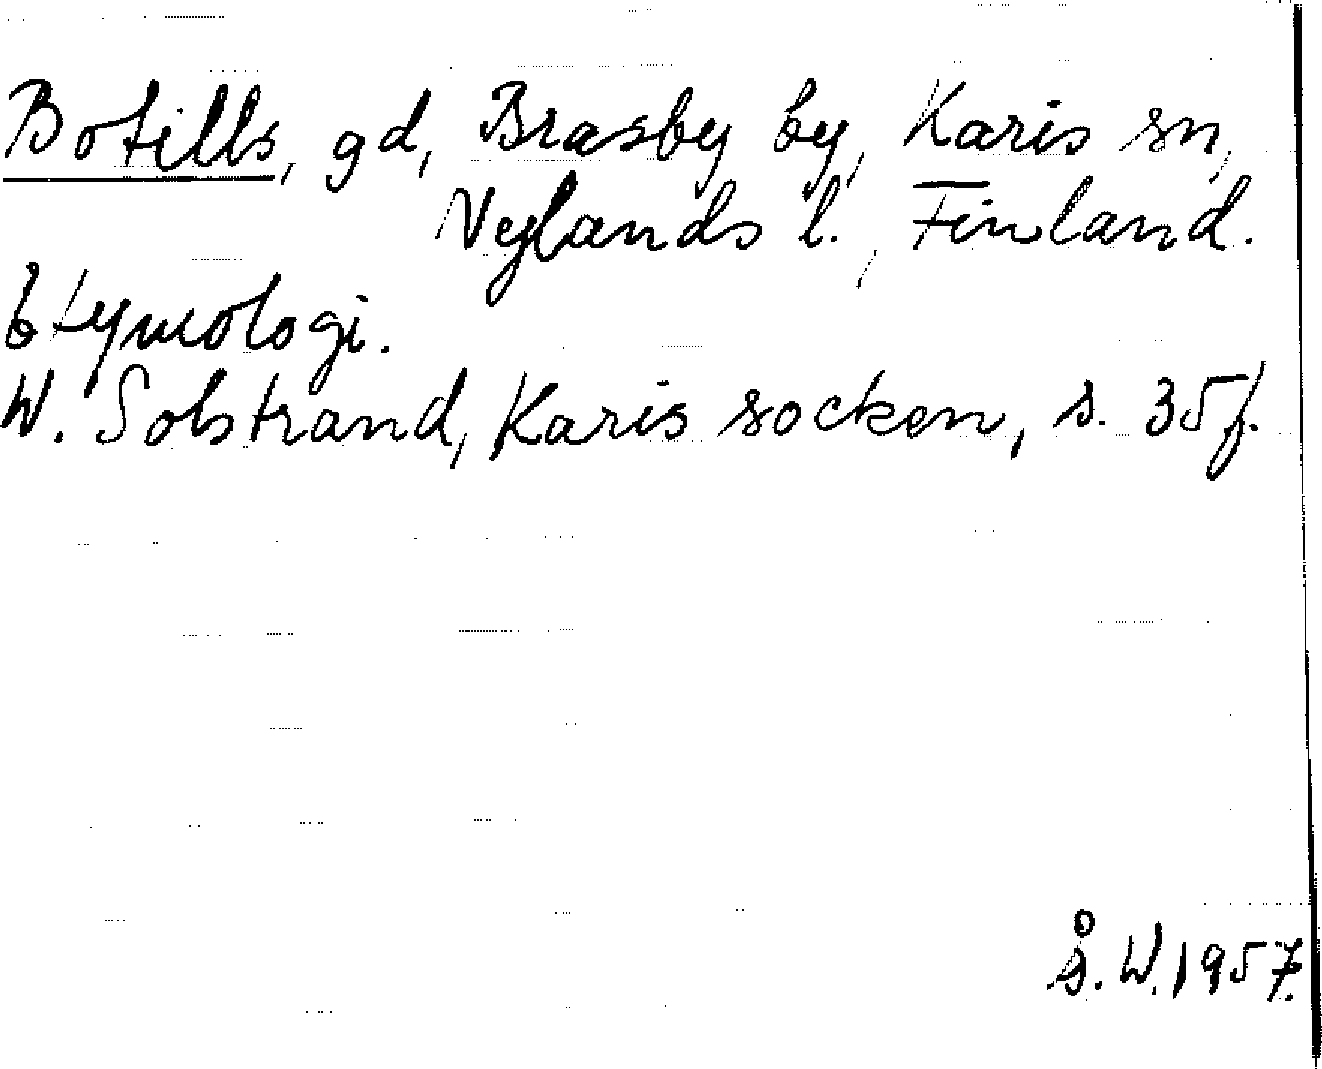 Botills, gd, Brasby by, Karis sn,
Nylands l., Finland.
Etymologi.
W. Solstrand, Karis socken, s. 35 f.
Å. W. 1957.